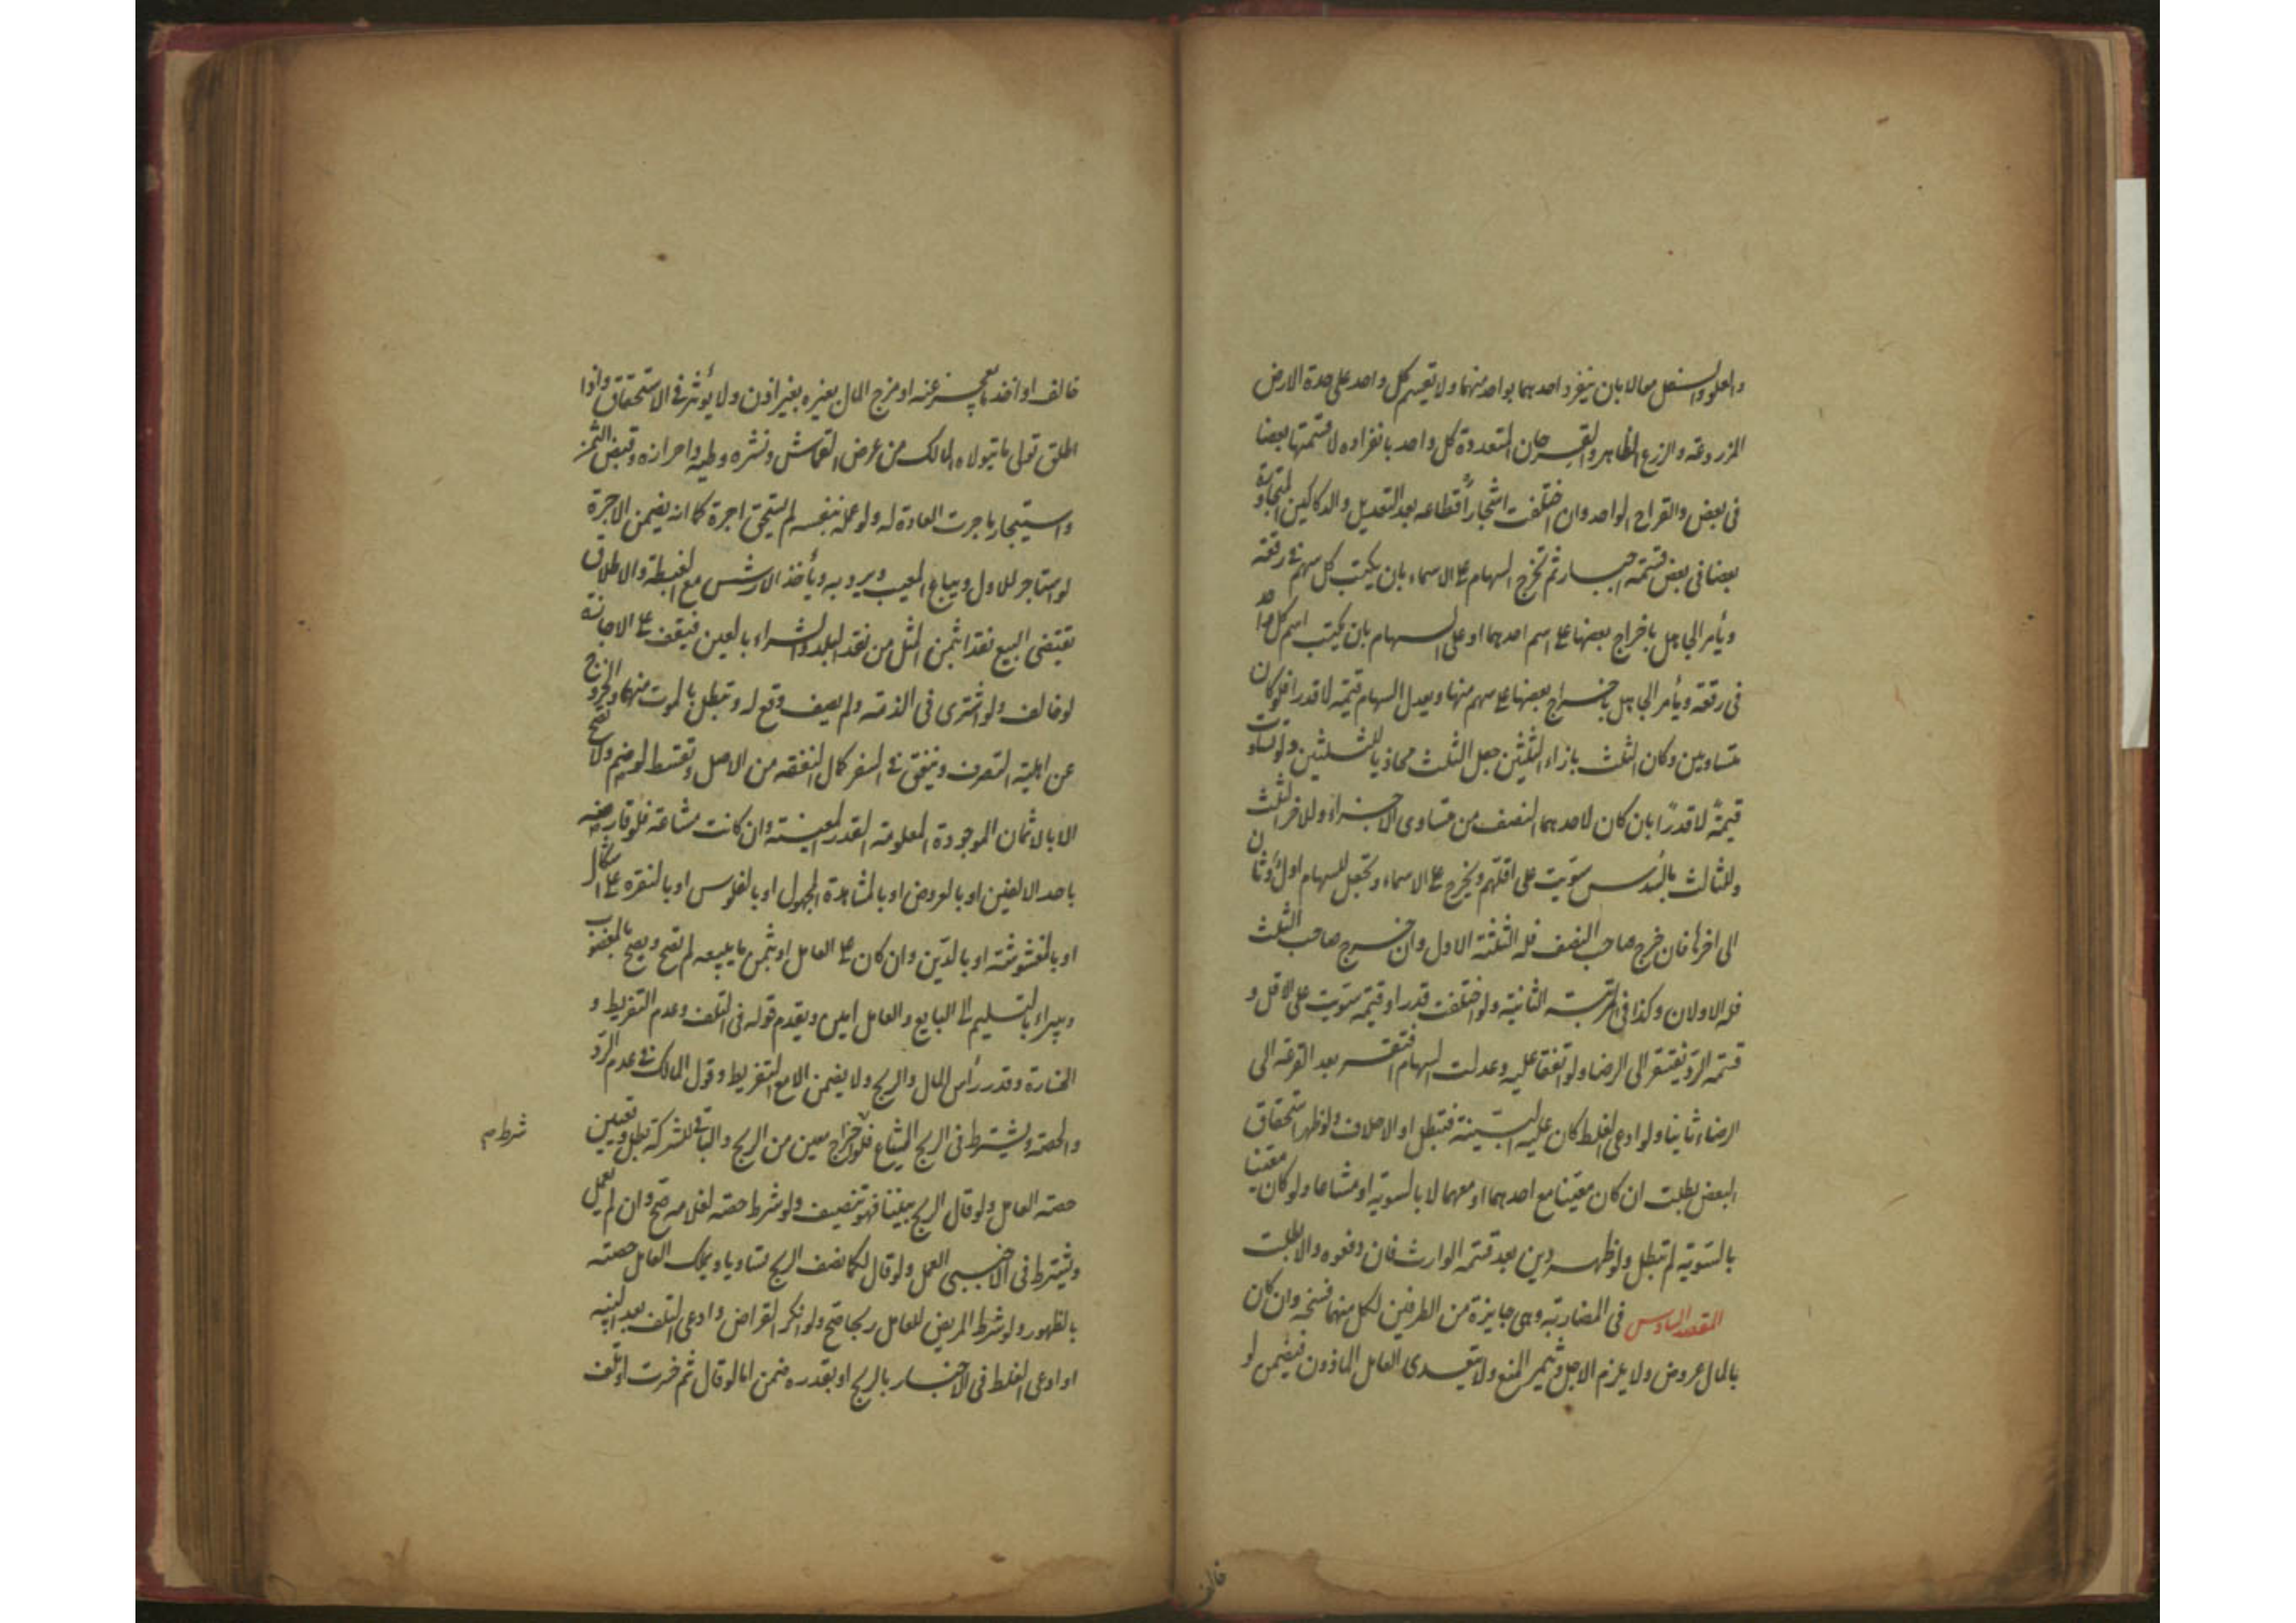 والعلو والسفل معا لا بان ينفرد احدهما بواحد منهما ولا تقسم كل واحد على حدة الارض
المزروعة والزرع الظاهر والقرحان المتعددة كل واحد بانفراده لا قسمتها بعضا
فى بعض والقراح الواحد وان اختلفت اشجار أقطاعه بعد التعديل والدكاكين المتجاورة
بعضا فى بعض قسمة اجبار ثم تخرج السهام على الاسماء بان يكتب كل سهم فى رقعة
ويأمر الجاهل باخراج بعضها على اسم احدهما او على السهام بان يكتب اسم كل واحد
فى رقعة ويأمر الجاهل باخراج بعضها على سهم منها ويعدل السهام قيمة لا قدرا فلو كان
متساويين وكان الثلث بازاء الثلثين جعل الثلث محاذيا للثلثين ولو تساوت
قيمةً لا قدرًا بان كان لاحدهما النصف من متساوى الاجزاء وللاخر الثلث
وللثالث السُدس سوّيت على اقلهم ويخرج على الاسماء وتجعل للسهام اول وثان
الى اخرها فان خرج صاحب النصف فله الثلثة الاول وان خرج صاحب الثلث
فله الاولان وكذا فى المرتبة الثانية ولو اختلفت قدرا وقيمة سويت على الاقل و
قسمة الرد يفتقر الى الرضا ولو اتفقا عليه وعدلت السهام افتقر بعد القرعة الى
الرضاء ثانيا ولو ادعى الغلط كان عليه البيّنة فتبطل او الاحلاف ولو ظهر استحقاق
البعض بطلت ان كان معيّنا مع احدهما او معهما لا بالسوية او مشاعا ولو كان معيّنا
بالسّوية لم تبطل ولو ظهر دين بعد قسمة الوارث فان دفعوه والا بطلت
المقصد السادس فى المضاربة وهى جايزة من الطرفين لكل منهما فسخه وان كان
بالمال عروض ولا يلزم الاجل ويثمر المنع ولا يتعدى العامل الماذون فيضمن لو
خالف
خالف او اخذ ما يعجز عنه او مزج المال بغيره بغير اذن ولا يؤثر فى الاستحقاق واذا
اطلق تولى ما يتولاه المالك من عرض القماش ونشره وطيه واحرازه وقبض الثمن
واستيجار ما جرت العادة له ولو عمله بنفسه لم يستحق اجرة كما انه يضمن الاجرة
لو استاجر للاول ويبتاع المعيب ويرد به ويأخذ الارش مع الغبطة والاطلاق
يقتضى البيع نقدا بثمن المثل من نقد البلد والشراء بالعين فيقف على الاجازة
لو خالف ولو اشترى فى الذمة ولم يضف وقع له وتبطل بالموت منهما والخروج
عن اهلية التصرف وينفق فى السفر كمال النفقة من الاصل وتقسط لو ضم ولا تصح
الا بالاثمان الموجودة المعلومة القدر المعينة وان كانت مشاعة فلو قارضه
باحد الالفين او بالعروض او بالمشاهدة المجهول او بالفلوس او بالنقرة على اشكال
او بالمغشوشة او بالدّين وان كان على العامل او بثمن ما يبيعه لم تصح ويصح بالمغصوب
ويبراء بالتسليم الى البايع والعامل امين ويقدم قوله فى التلف وعدم التفريط و
الخسارة وقدر رأس المال والربح ولا يضمن الا مع التفريط وقول المالك فى عدم الرّد
والحصة ويشترط فى الربح الشياع فلو اخراج معين من الربح والباقى للشركة بطل وتعيين
شرط م
حصة العامل ولو قال الربح بيننا فهو تنصيف ولو شرط حصة لغلامه صح وان لم يعمل
ويشترط فى الاجنبى العمل ولو قال لكما نصف الربح تساويا ويملك العامل حصته
بالظهور ولو شرط المريض للعامل ربحا صح ولو انكر القراض وادعى التلف بعد البينه
او ادعى الغلط فى الاخبار بالربح او بقدره ضمن اما لو قال ثم خسرت او تلف